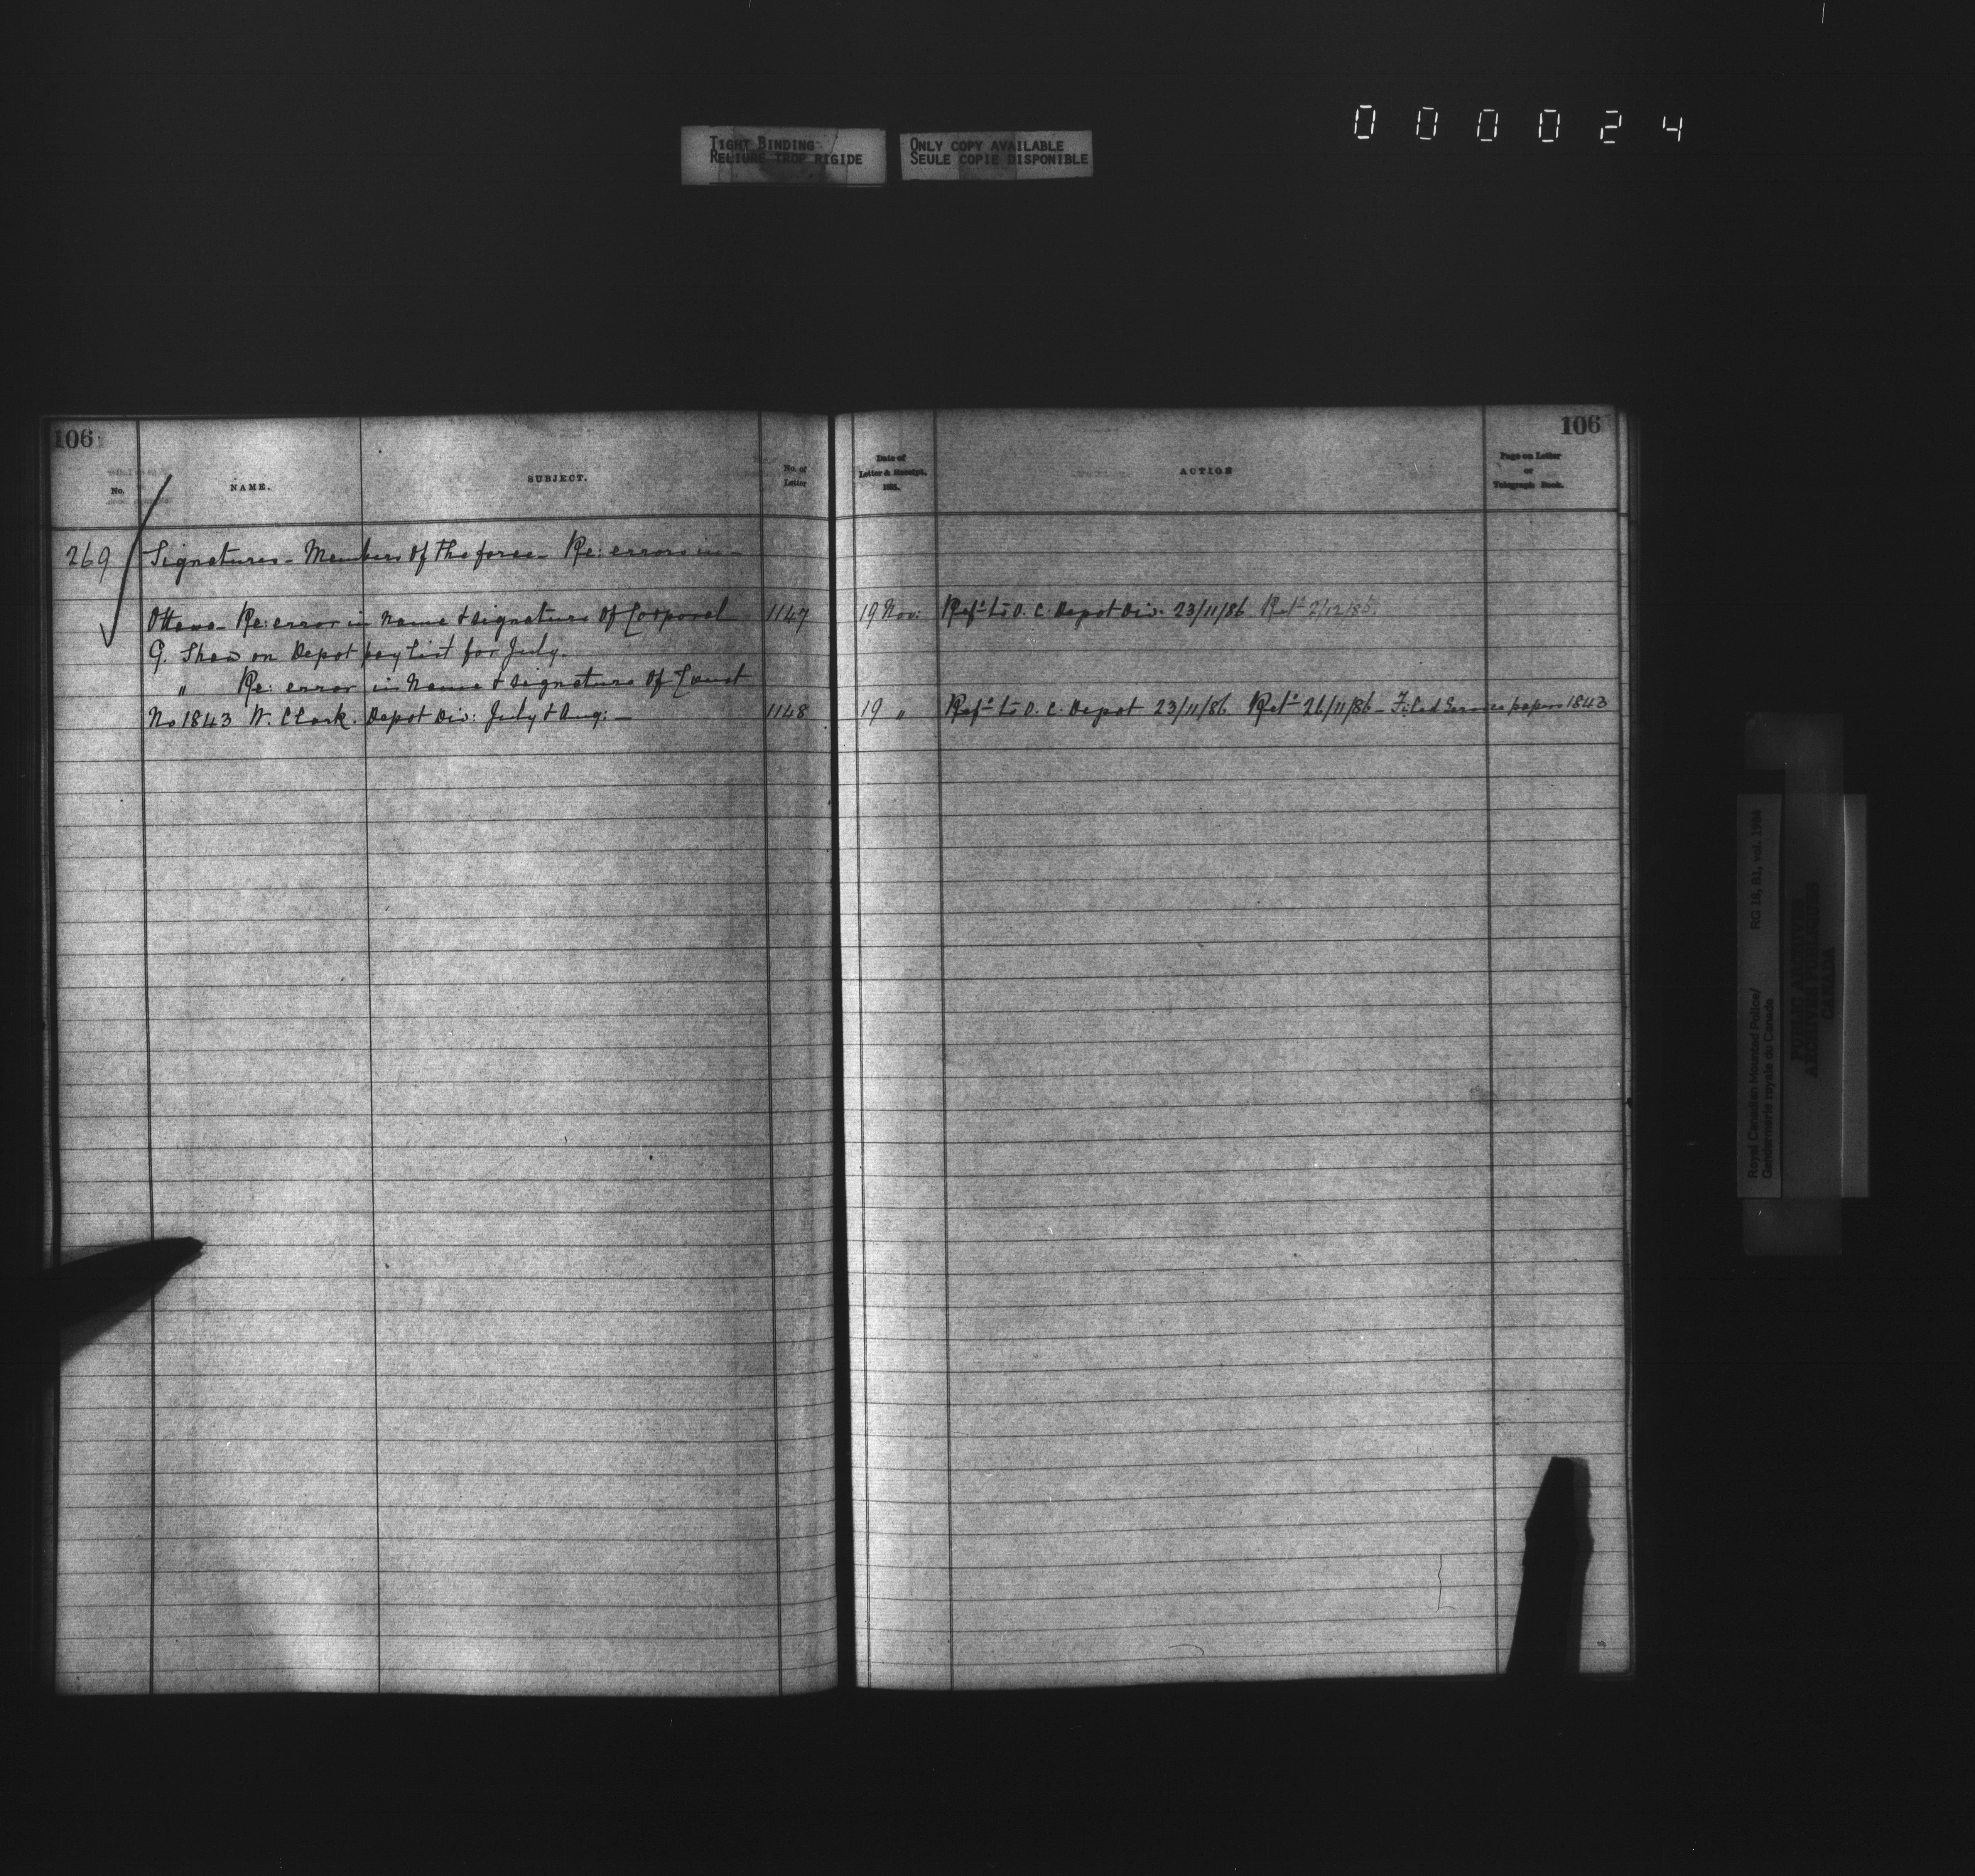 0 0 0 0 2 4
TIGHT BINDING
RELIURE TROP RIGIDE
ONLY COPY AVAILABLE
SEULE COPIE DISPONIBLE
106
No.
NAME.
SUBJECT.
No. of
Letter
269 Signatures - Members of the force - Re: errors in -
Ottawa - Re: error in name & signature of Corporal 1147
G. Shaw on Depot pay list for July.
" Re: error in name & signature of Const
No 1843 W. Clark. Depot Div: July & Aug: - 1148
106
Date of
Letter & Receipt,
188
ACTION
Page on Letter
or
Telegraph Book.
19 Nov: Ref'd to O. C. Depot Div. 23/11/86. Ret'd 2/12/86.
19 " Ref'd to O. C. Depot 23/11/86 Ret'd 26/11/86 - Filed Service papers 1843
Royal Canadian Mounted Police/
Gendarmerie royale du Canada
RG 18, B1, vol. 1984
PUBLIC ARCHIVES
ARCHIVES PUBLIQUES
CANADA